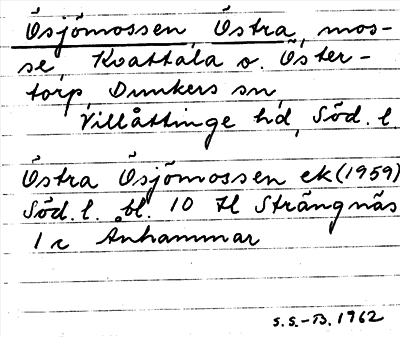 Ösjömossen, Östra, mos-
se, Kvattala o. Öster-
torp, Dunkers sn,
Villåttinge hd, Söd. l.
Östra Ösjömossen ek (1959)
Söd. l. bl. 10 H Strängnäs
1 c Änhammar
S.S.-B. 1962